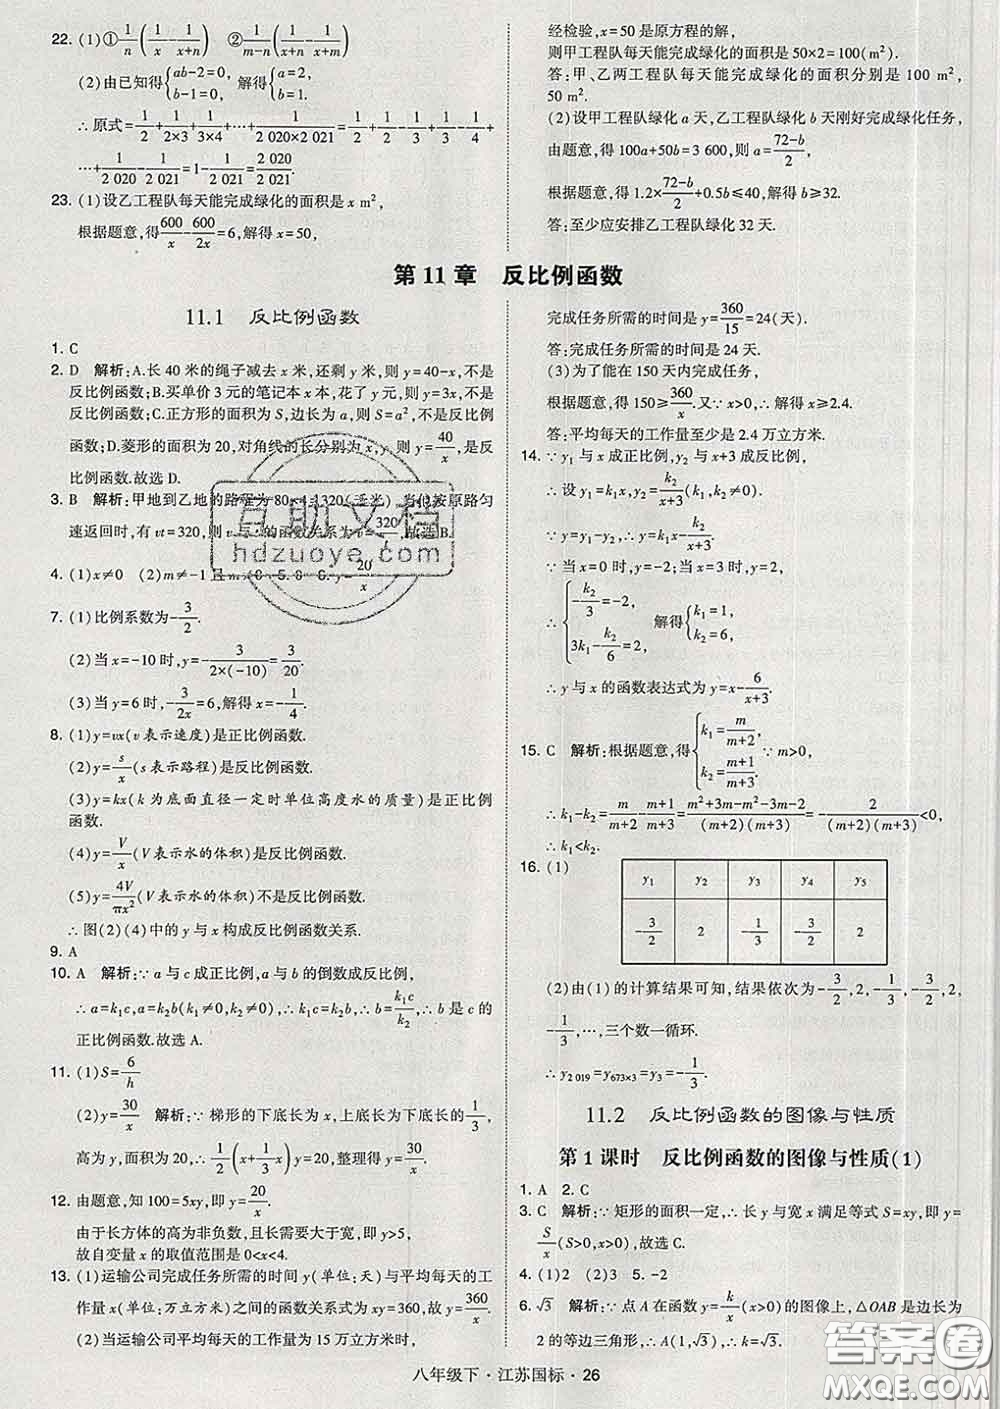 22. (1)①1/n(1/x-1/(x+n))  ②1/(m-n)(1/(x+n)-1/(x+m))
(2)由已知得{ab-2=0, b-1=0, 解得{a=2, b=1.
∴原式=1/2+1/(2×3)+1/(3×4)+…+1/(2 020×2 021)=1/2+1/2-1/3+1/3-1/4+…+
1/2 020-1/2 021=1-1/2 021=2 020/2 021.
23. (1)设乙工程队每天能完成绿化的面积是 x m²,
根据题意,得600/x-600/2x=6,解得:x=50,
经检验,x=50是原方程的解,
则甲工程队每天能完成绿化的面积是50×2=100(m²).
答:甲、乙两工程队每天能完成绿化的面积分别是 100 m²、
50 m².
(2)设甲工程队绿化 a 天,乙工程队绿化 b 天刚好完成绿化任务,
由题意得:100a+50b=3 600,则 a=(72-b)/2,
根据题意,得 1.2×(72-b)/2+0.5b≤40,解得:b≥32.
答:至少应安排乙工程队绿化 32 天.
第11章 反比例函数
11.1 反比例函数
1. C
2. D 解析:A.长 40 米的绳子减去 x 米,还剩 y 米,则 y=40-x,不是
反比例函数;B.买单价 3 元的笔记本 x 本,花了 y 元,则 y=3x,不是
反比例函数;C.正方形的面积为 S,边长为 a,则 S=a²,不是反比例
函数;D.菱形的面积为 20,对角线的长分别为 x,y,则 y=40/x,是反
比例函数.故选 D.
3. B 解析:甲地到乙地的路程为 80×4=320(千米),当他按原路匀
速返回时,有 vt=320,则 v 与 t 的函数关系为 v=320/t,故选 B.
4. (1)x≠0 (2)m≠-1 且 m≠0 5. 8 6. y=20/x
7. (1)比例系数为-3/2.
(2)当 x=-10 时,y=-3/(2×(-10))=3/20.
(3)当 y=6 时,-3/2x=6,x=-1/4.
8. (1)y=vx(v 表示速度)是正比例函数.
(2)y=s/x(s 表示路程)是反比例函数.
(3)y=kx(k 为底面直径一定时单位高度水的质量)是正比例
函数.
(4)y=V/x(V 表示水的体积)是反比例函数.
(5)y=4V/πx²(V 表示水的体积)不是反比例函数.
∴图(2)(4)中的 y 与 x 构成反比例函数关系.
9. A
10. A 解析:∵a 与 c 成正比例,a 与 b 的倒数成反比例,
∴a=k₁c,a=k₂b(k₁≠0,k₂≠0),∴k₁c=k₂b,∴b=k₁c/k₂,∴b 是 c 的
正比例函数.故选 A.
11. (1)S=6/h
(2)y=30/x 解析:∵梯形的下底长为x,上底长为下底长的1/3,
高为y,面积为20,∴1/2(x+1/3x)y=20,整理得y=30/x.
12. 由题意,知 100=5xy,即 y=20/x.
由于长方体的高为非负数,且长需要大于宽,即 y>5,
故自变量 x 的取值范围是 0<x<4.
13. (1)运输公司完成任务所需的时间 y(单位:天)与平均每天的工
作量 x(单位:万立方米)之间的函数关系式为 xy=360,故 y=360/x.
(2)当运输公司平均每天的工作量为 15 万立方米时,
完成任务所需的时间是 y=360/15=24(天).
答:完成任务所需的时间是 24 天.
(3)为了能在 150 天内完成任务,
根据题意,得 150≥360/x.又∵x>0,∴解得 x≥2.4.
答:平均每天的工作量至少是 2.4 万立方米.
14. ∵y₁ 与 x 成正比例,y₂ 与 x+3 成反比例,
∴设 y₁=k₁x,y₂=k₂/(x+3)(k₁,k₂≠0).
∵y=y₁-y₂,∴y=k₁x-k₂/(x+3).
∵当 x=0 时,y=-2;当 x=3 时,y=2.
∴{-k₂/3=-2, 3k₁-k₂/6=2, 解得{k₁=1, k₂=6.
∴y 与 x 的函数表达式为 y=x-6/(x+3).
15. C 解析:根据题意,得{k₁=m/(m+2) k₂=(m+1)/(m+3) ∵m>0,
∴k₁-k₂=m/(m+2)-(m+1)/(m+3)=(m²+3m-m²-3m-2)/((m+2)(m+3))=-2/((m+2)(m+3))<0,
∴k₁<k₂.
16. (1)
y₁ y₂ y₃ y₄ y₅
-3/2 2 -1/3 -3/2 2
(2)由(1)的计算结果可知,结果依次为-3/2,2,-1/3,-3/2,2,
-1/3,…,三个数一循环.
∴y₂₀₁₉=y₆₇₃ₓ₃=y₃=-1/3.
11.2 反比例函数的图像与性质
第1课时 反比例函数的图像与性质(1)
1. A 2. C
3. C 解析:∵矩形的面积一定,∴长 y 与宽 x 满足等式 S=xy,即 y=
S/x(S>0,x>0),故选 C.
4. (1)2 (2)3 5. -2
6. √3 解析:∵点 A 在函数 y=k/x(x>0)的图像上,△OAB 是边长为
2 的等边三角形,∴A(1,√3),∴k=√3.
八年级下·江苏国标·26
互助文档
hdzuoye.com
答案圈
MXQE.COM